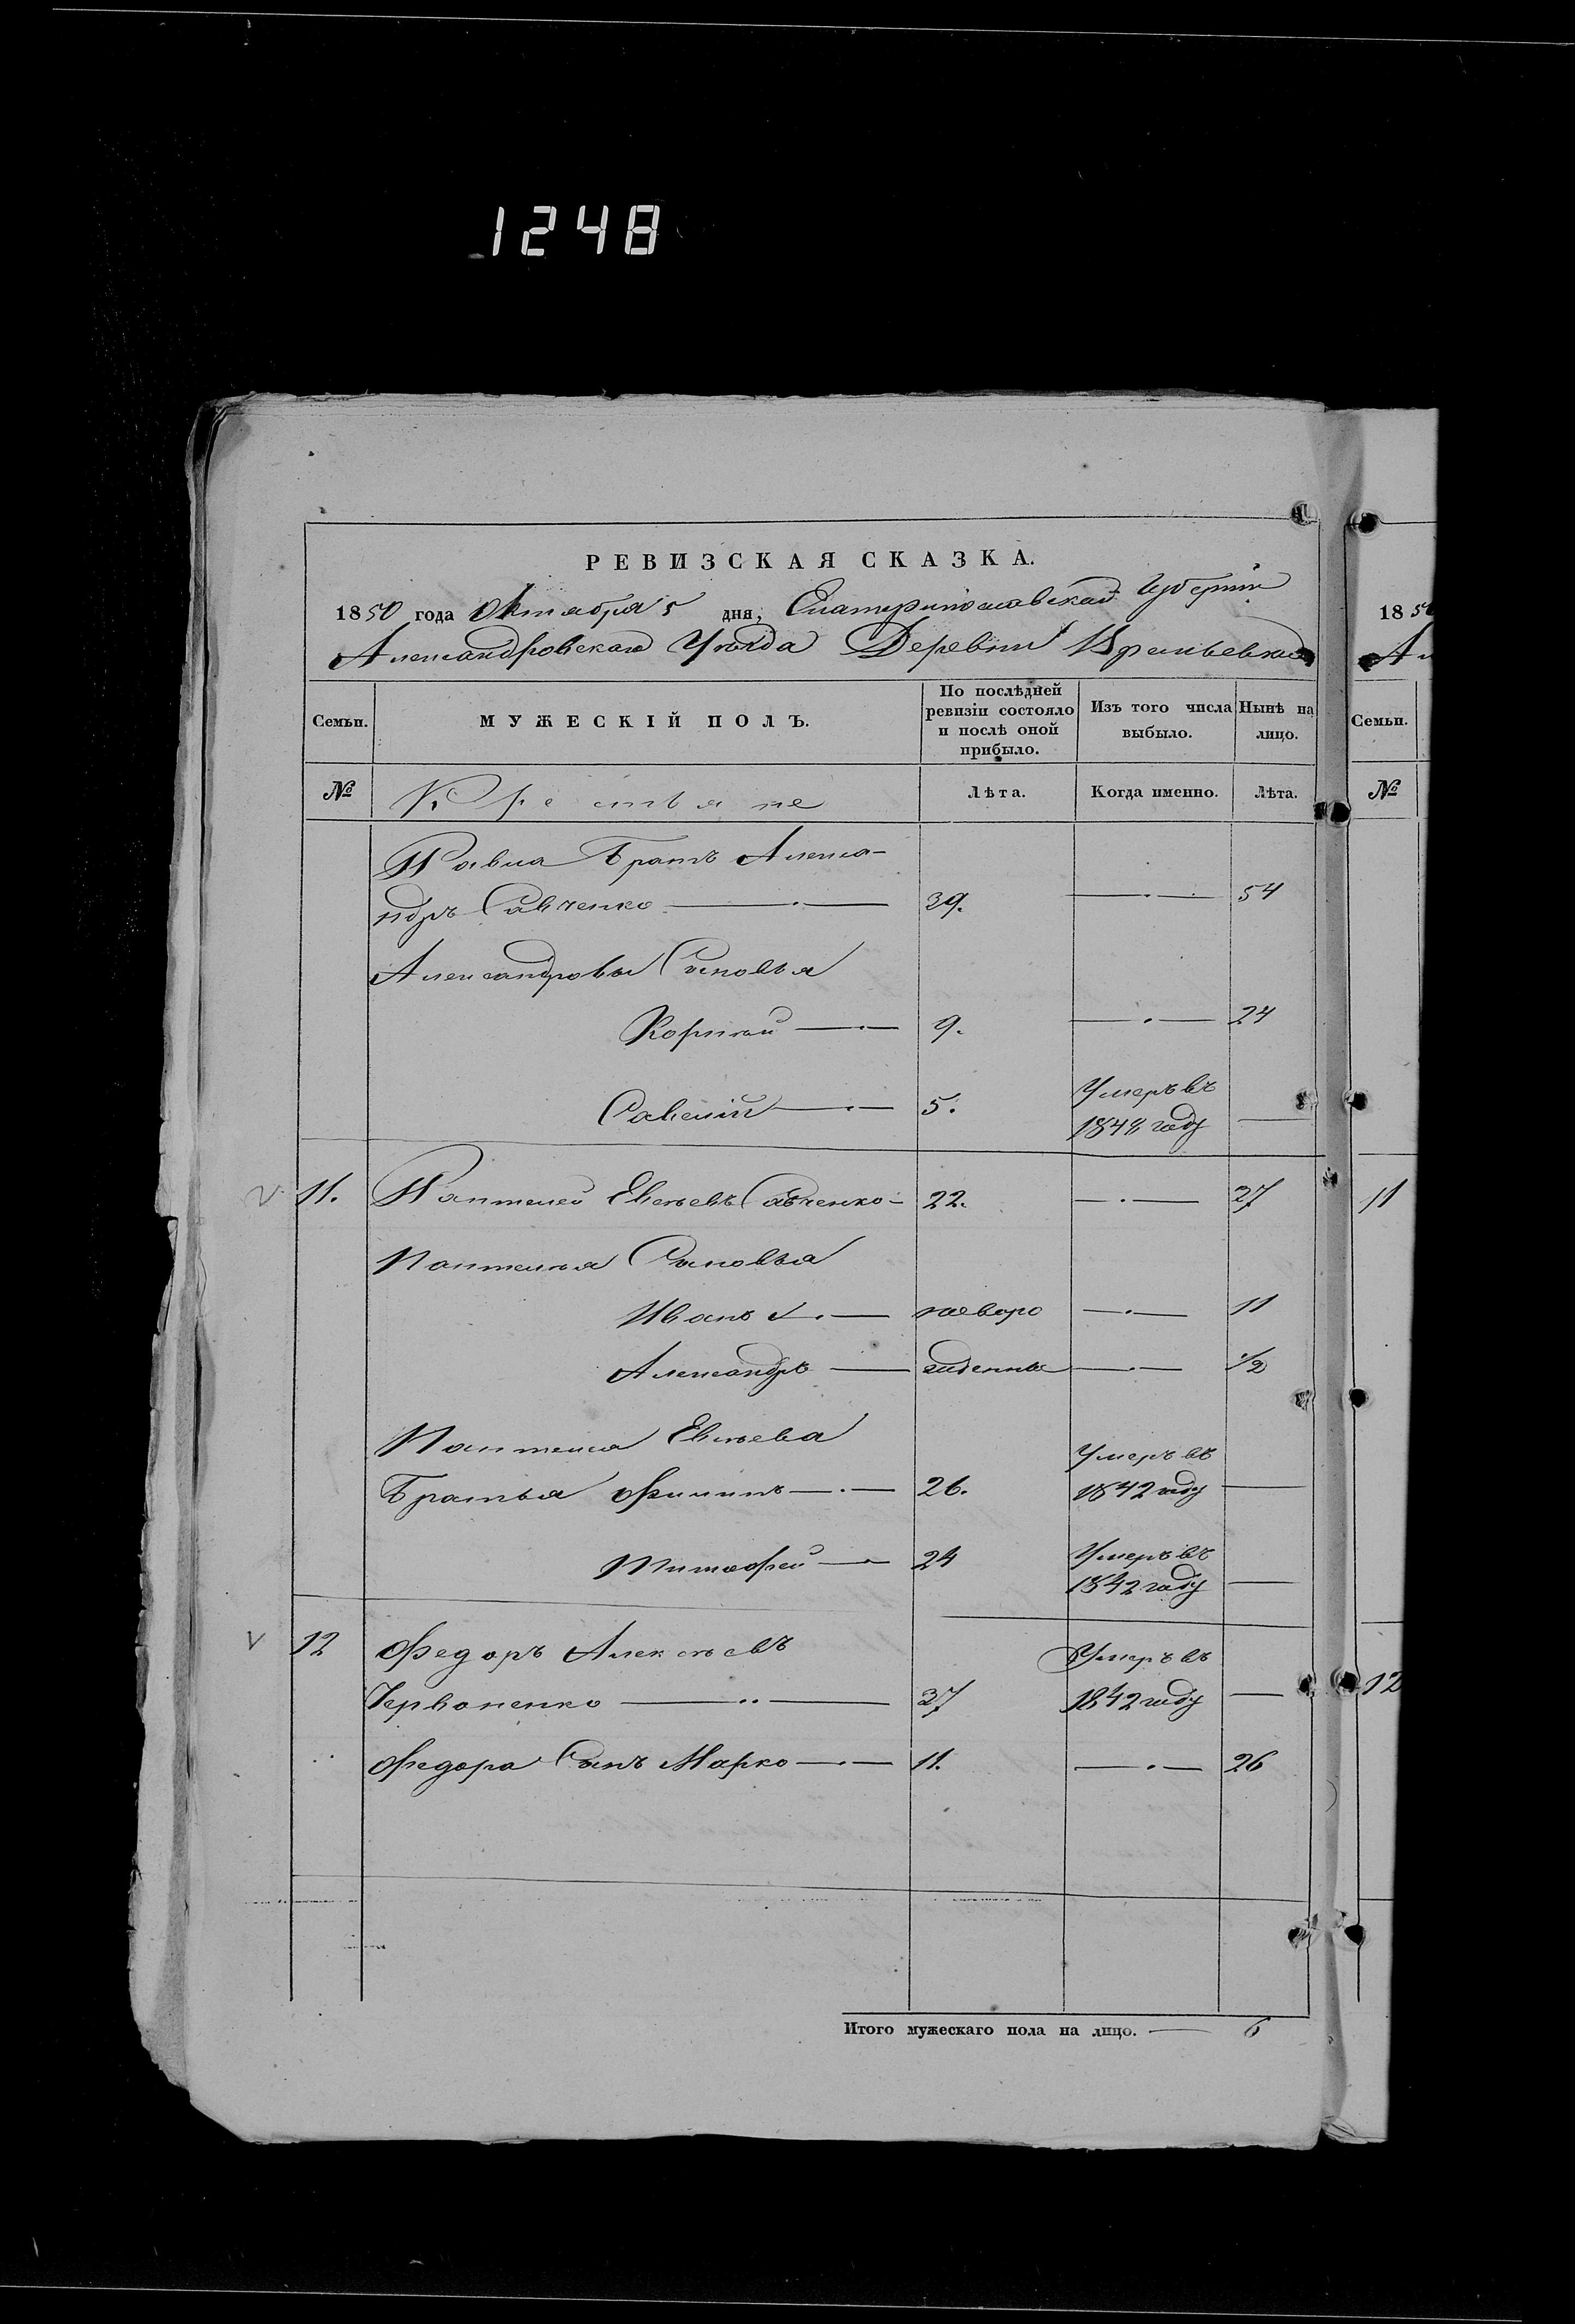 1248
РЕВИЗСКАЯ СКАЗКА.
1850 года Октября 5 дня, Екатеринославской Губернии
Александровскаго Уѣзда Деревни Времьевки
1850
Семьи. МУЖЕСКІЙ ПОЛЪ. По послѣдней ревизіи состояло и послѣ оной прибыло. Изъ того числа выбыло. Нынѣ на лицо. Семьи.
№ Крестьяне Лѣта. Когда именно. Лѣта. №
Павла Братъ Алекса-
ндръ Савченко 39. 54
Александровы Сыновья
Корнѣй 9. 24
Савелій 5. Умеръ въ
1848 году
11. Пантелей Евсѣевъ Савченко 22. 27 11
Пантелѣя Сыновья
Иванъ новоро 11
Александръ жденные 1/2
Пантелея Евсѣева
Умеръ въ
Братья Филипъ 26. 1842 году
Тимофей 24 Умеръ въ
1842 году
12 Федоръ Алексѣевъ Умеръ въ
Червоненко 37 1842 году 12
Федора Сынъ Марко 11. 26
Итого мужескаго пола на лицо. 6